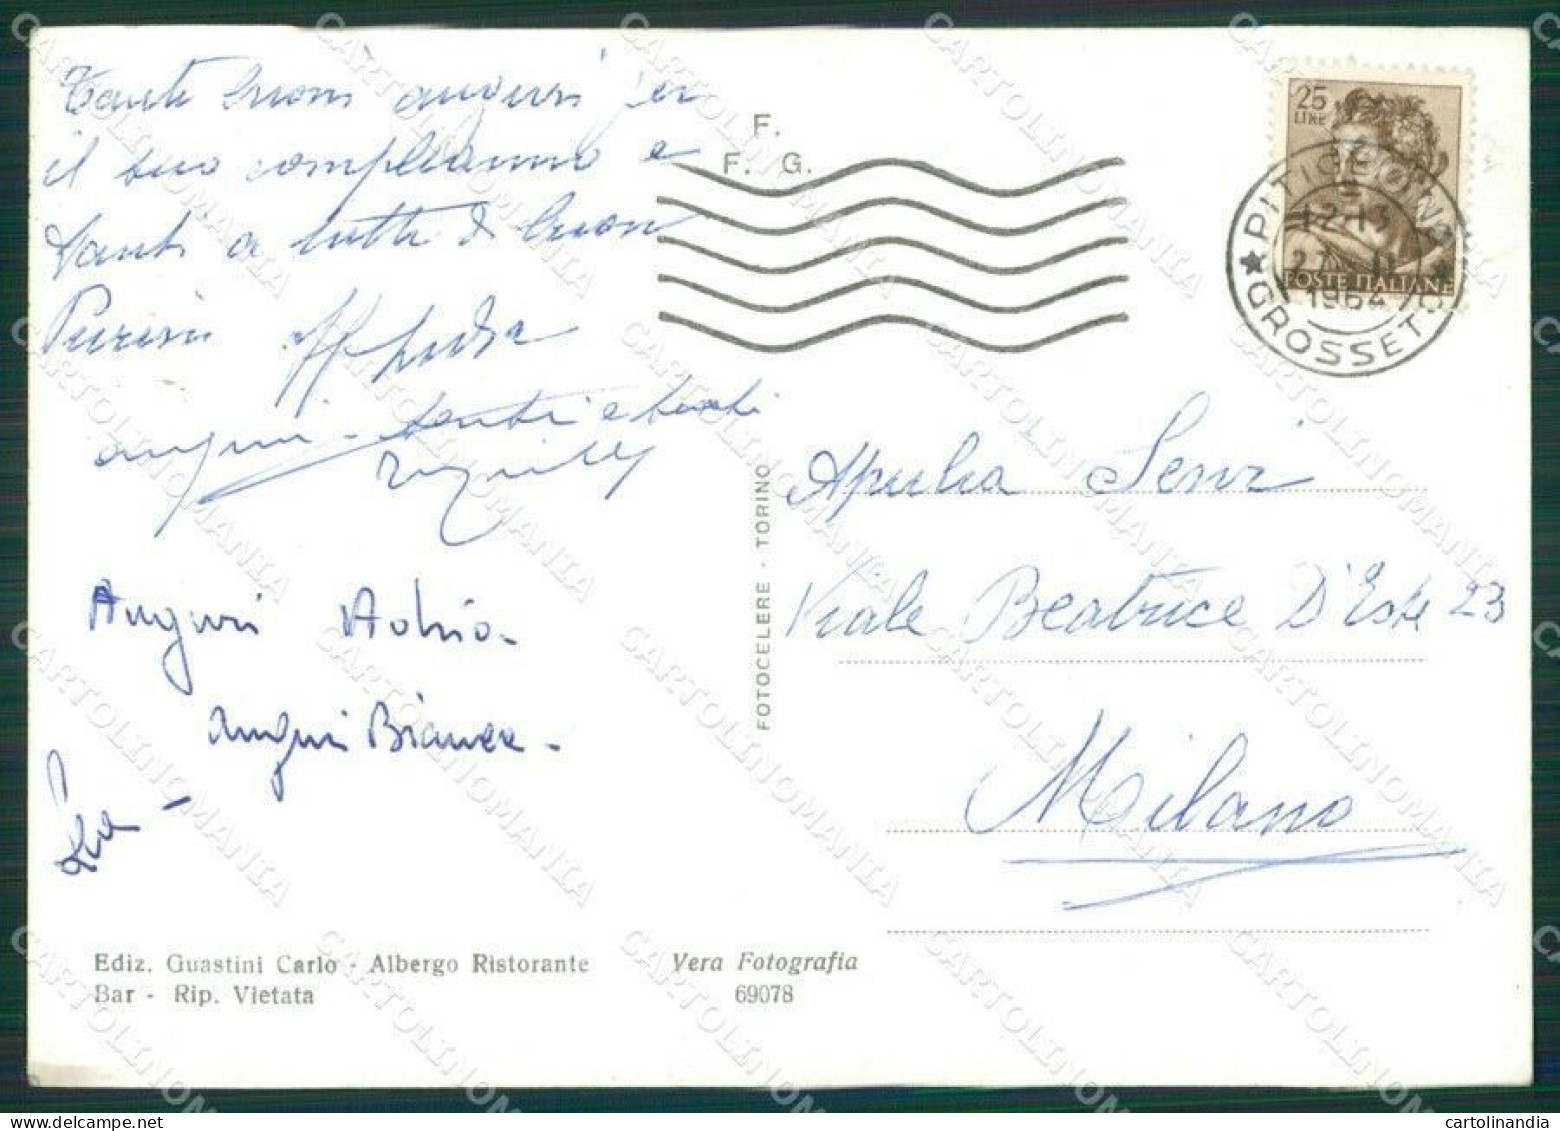 Tanti buoni auguri per
il suo compleanno e
tanti a tutti di buon
auguri - tanti e tanti
Auguri
auguri Bianca -
F.
F. G.
25
LIRE
POSTE ITALIANE
PITIGLIANO
12-13
27 11
1964
GROSSETO
Apulia Servi
Viale Beatrice D'Este 23
Milano
FOTOCELERE - TORINO
Ediz. Guastini Carlo - Albergo Ristorante
Bar - Rip. Vietata
Vera Fotografia
69078
CARTOLINOMANIA
cartolinandia